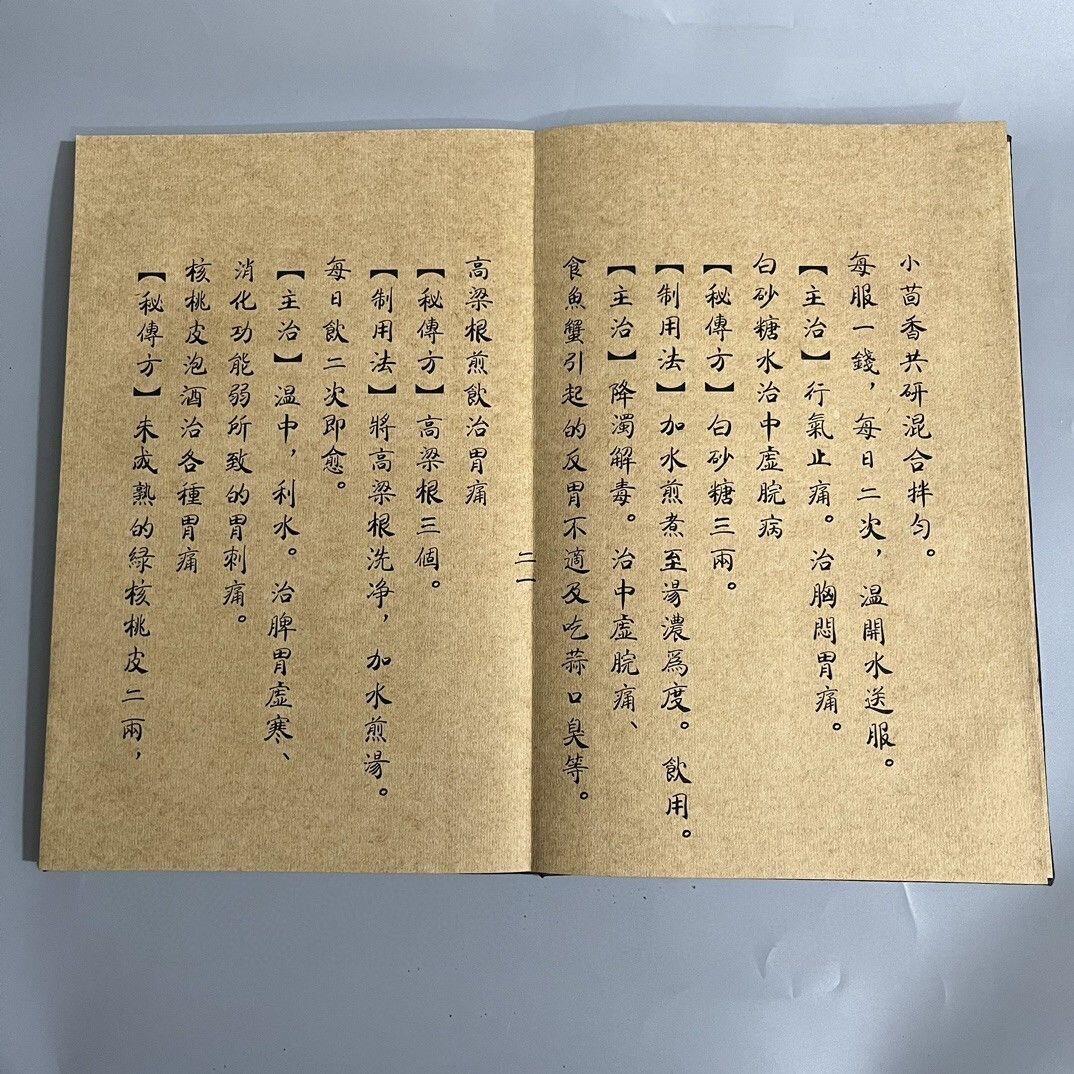 小茴香共研混合拌勻。
每服一錢，每日二次，温開水送服。
【主治】行氣止痛。治胸悶胃痛。
白砂糖水治中虛脘病
【秘傳方】白砂糖三兩。
【制用法】加水煎煮至湯濃爲度。飲用。
【主治】降濁解毒。治中虛脘痛、
食魚蟹引起的反胃不適及吃蒜口臭等。
二一
高梁根煎飲治胃痛
【秘傳方】高梁根三個。
【制用法】將高梁根洗净，加水煎湯。
每日飲二次即愈。
【主治】温中，利水。治脾胃虛寒、
消化功能弱所致的胃刺痛。
核桃皮泡酒治各種胃痛
【秘傳方】未成熟的緑核桃皮二兩，